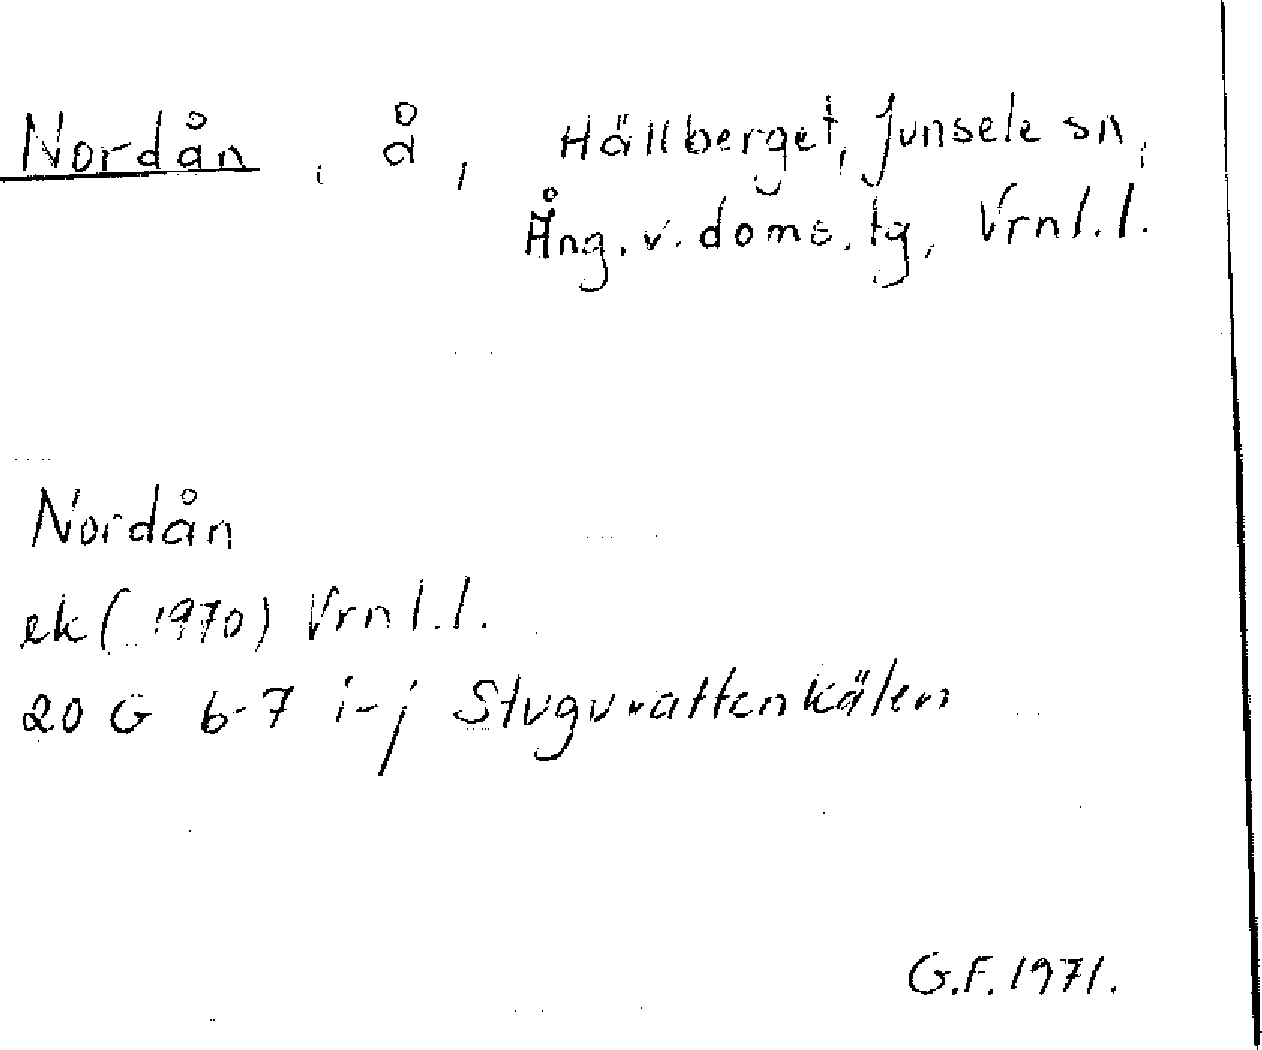 Nordån, å, Hällberget, Junsele sn,
Ång. v. doms. tg, Vrnl.l.
Nordån
ek (1970) Vrnl.l.
20 G 6-7 i-j Stuguvattenkälen
G.F. 1971.